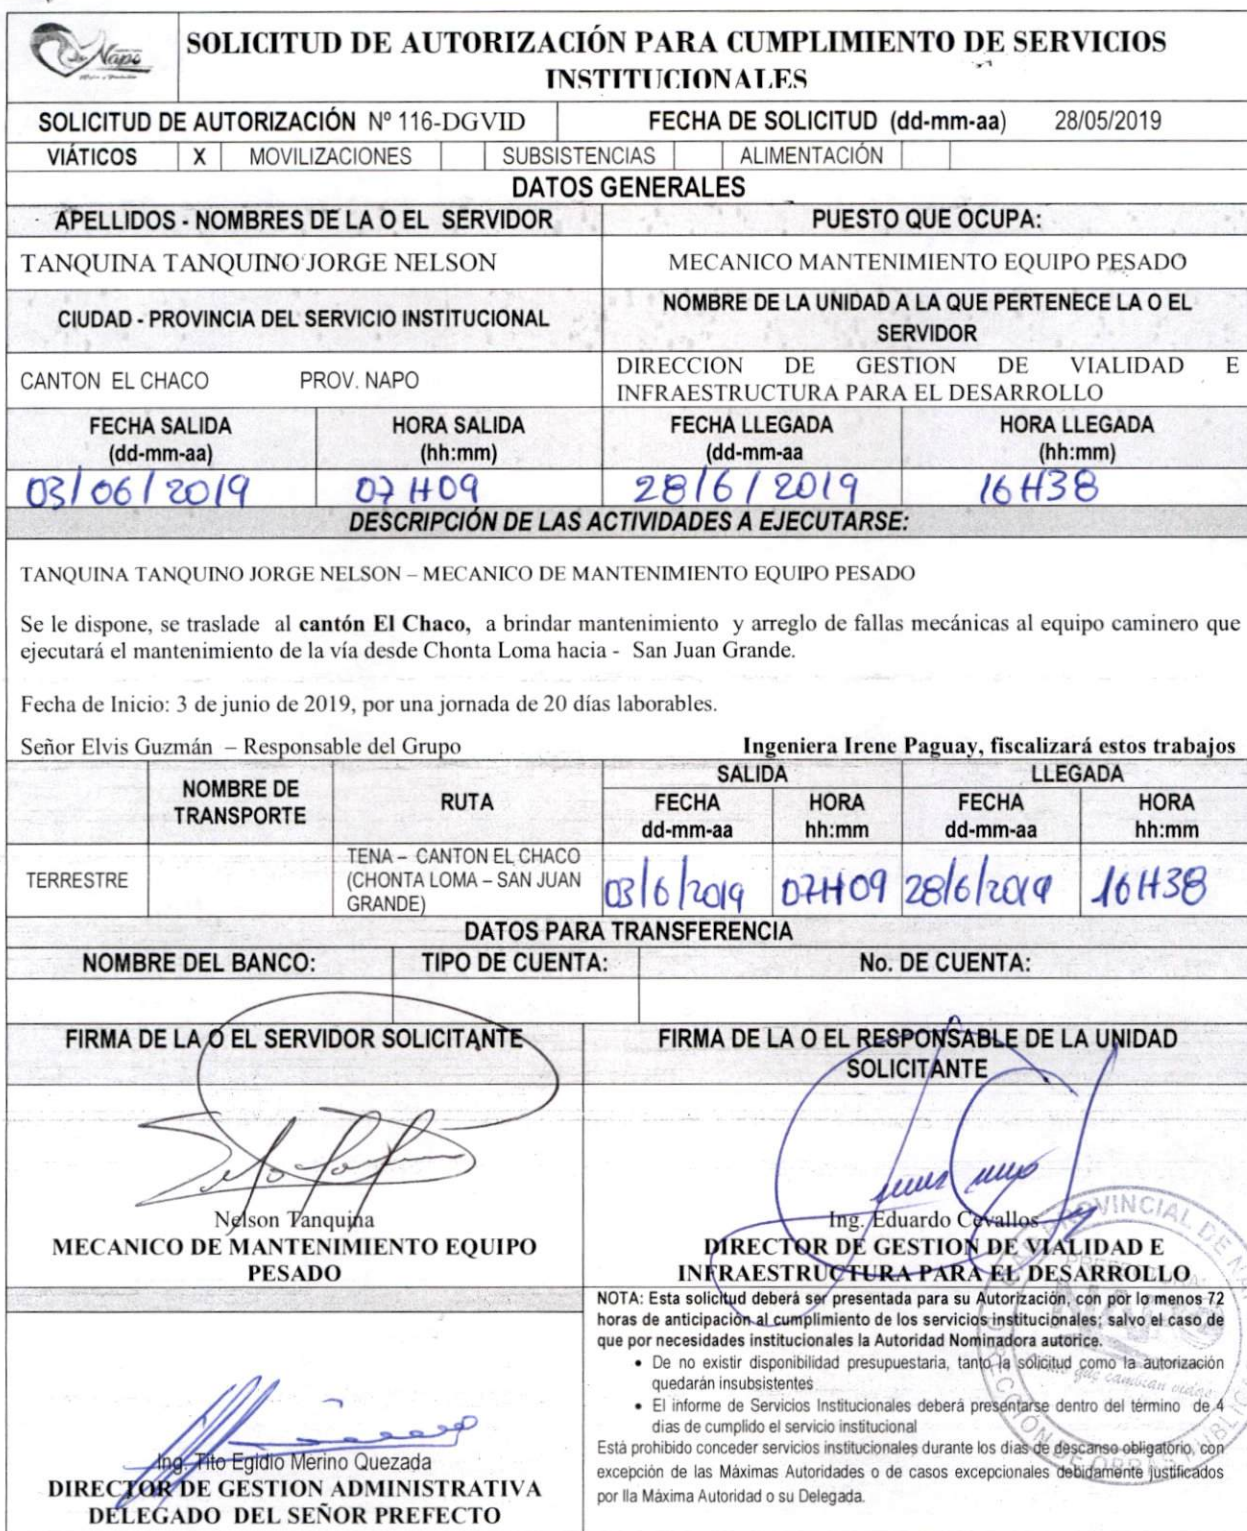 Napo
SOLICITUD DE AUTORIZACIÓN PARA CUMPLIMIENTO DE SERVICIOS
INSTITUCIONALES
SOLICITUD DE AUTORIZACIÓN Nº 116-DGVID FECHA DE SOLICITUD (dd-mm-aa) 28/05/2019
VIÁTICOS X MOVILIZACIONES SUBSISTENCIAS ALIMENTACIÓN
DATOS GENERALES
APELLIDOS - NOMBRES DE LA O EL SERVIDOR PUESTO QUE OCUPA:
TANQUINA TANQUINO JORGE NELSON MECANICO MANTENIMIENTO EQUIPO PESADO
CIUDAD - PROVINCIA DEL SERVICIO INSTITUCIONAL NOMBRE DE LA UNIDAD A LA QUE PERTENECE LA O EL
SERVIDOR
CANTON EL CHACO PROV. NAPO DIRECCION DE GESTION DE VIALIDAD E
INFRAESTRUCTURA PARA EL DESARROLLO
FECHA SALIDA HORA SALIDA FECHA LLEGADA HORA LLEGADA
(dd-mm-aa) (hh:mm) (dd-mm-aa (hh:mm)
03/06/2019 07H09 28/6/2019 16H38
DESCRIPCIÓN DE LAS ACTIVIDADES A EJECUTARSE:
TANQUINA TANQUINO JORGE NELSON – MECANICO DE MANTENIMIENTO EQUIPO PESADO
Se le dispone, se traslade al cantón El Chaco, a brindar mantenimiento y arreglo de fallas mecánicas al equipo caminero que
ejecutará el mantenimiento de la vía desde Chonta Loma hacia - San Juan Grande.
Fecha de Inicio: 3 de junio de 2019, por una jornada de 20 días laborables.
Señor Elvis Guzmán – Responsable del Grupo Ingeniera Irene Paguay, fiscalizará estos trabajos
SALIDA LLEGADA
NOMBRE DE TRANSPORTE RUTA FECHA HORA FECHA HORA
dd-mm-aa hh:mm dd-mm-aa hh:mm
TERRESTRE TENA – CANTON EL CHACO
(CHONTA LOMA – SAN JUAN
GRANDE) 03/6/2019 07H09 28/6/2019 16H38
DATOS PARA TRANSFERENCIA
NOMBRE DEL BANCO: TIPO DE CUENTA: No. DE CUENTA:
FIRMA DE LA O EL SERVIDOR SOLICITANTE FIRMA DE LA O EL RESPONSABLE DE LA UNIDAD
SOLICITANTE
Nelson Tanquina
MECANICO DE MANTENIMIENTO EQUIPO
PESADO
Ing. Eduardo Cevallos
DIRECTOR DE GESTION DE VIALIDAD E
INFRAESTRUCTURA PARA EL DESARROLLO
NOTA: Esta solicitud deberá ser presentada para su Autorización, con por lo menos 72
horas de anticipación al cumplimiento de los servicios institucionales; salvo el caso de
que por necesidades institucionales la Autoridad Nominadora autorice.
• De no existir disponibilidad presupuestaria, tanto la solicitud como la autorización
quedarán insubsistentes
• El informe de Servicios Institucionales deberá presentarse dentro del término de 4
días de cumplido el servicio institucional
Está prohibido conceder servicios institucionales durante los días de descanso obligatorio, con
excepción de las Máximas Autoridades o de casos excepcionales debidamente justificados
por lla Máxima Autoridad o su Delegada.
Ing. Tito Egidio Merino Quezada
DIRECTOR DE GESTION ADMINISTRATIVA
DELEGADO DEL SEÑOR PREFECTO